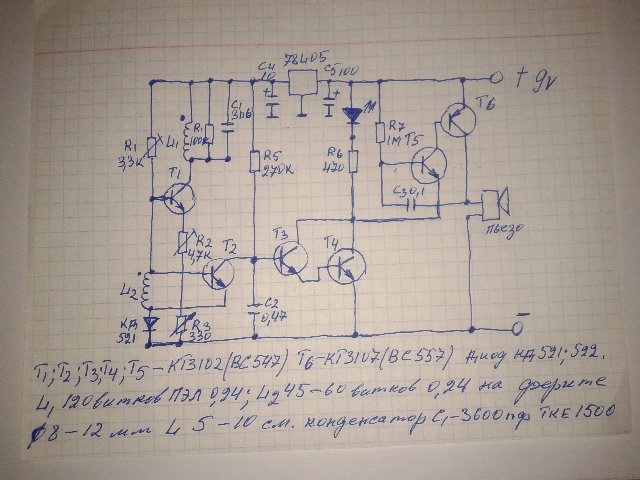 78L05
C4
10
C5 100
+ 9v
R1
3,3к
L1
R1
100к
C1
3n6
R5
270к
R6
470
R7
1м
T5
T6
C3 0,1
пьезо
T1
R2
4,7к
T2
T3
T4
L2
КД
521
R3
330
C2
0,47
–
T1; T2; T3; T4; T5 – КТ3102 (ВС547) T6 – КТ3107 (ВС557) Диод КД521; 522.
L1 120 витков ПЭЛ 0,24; L2 45–60 витков 0,24 на феррите
φ8–12 мм L 5–10 см. конденсатор C1–3600пф ТКЕ 1500